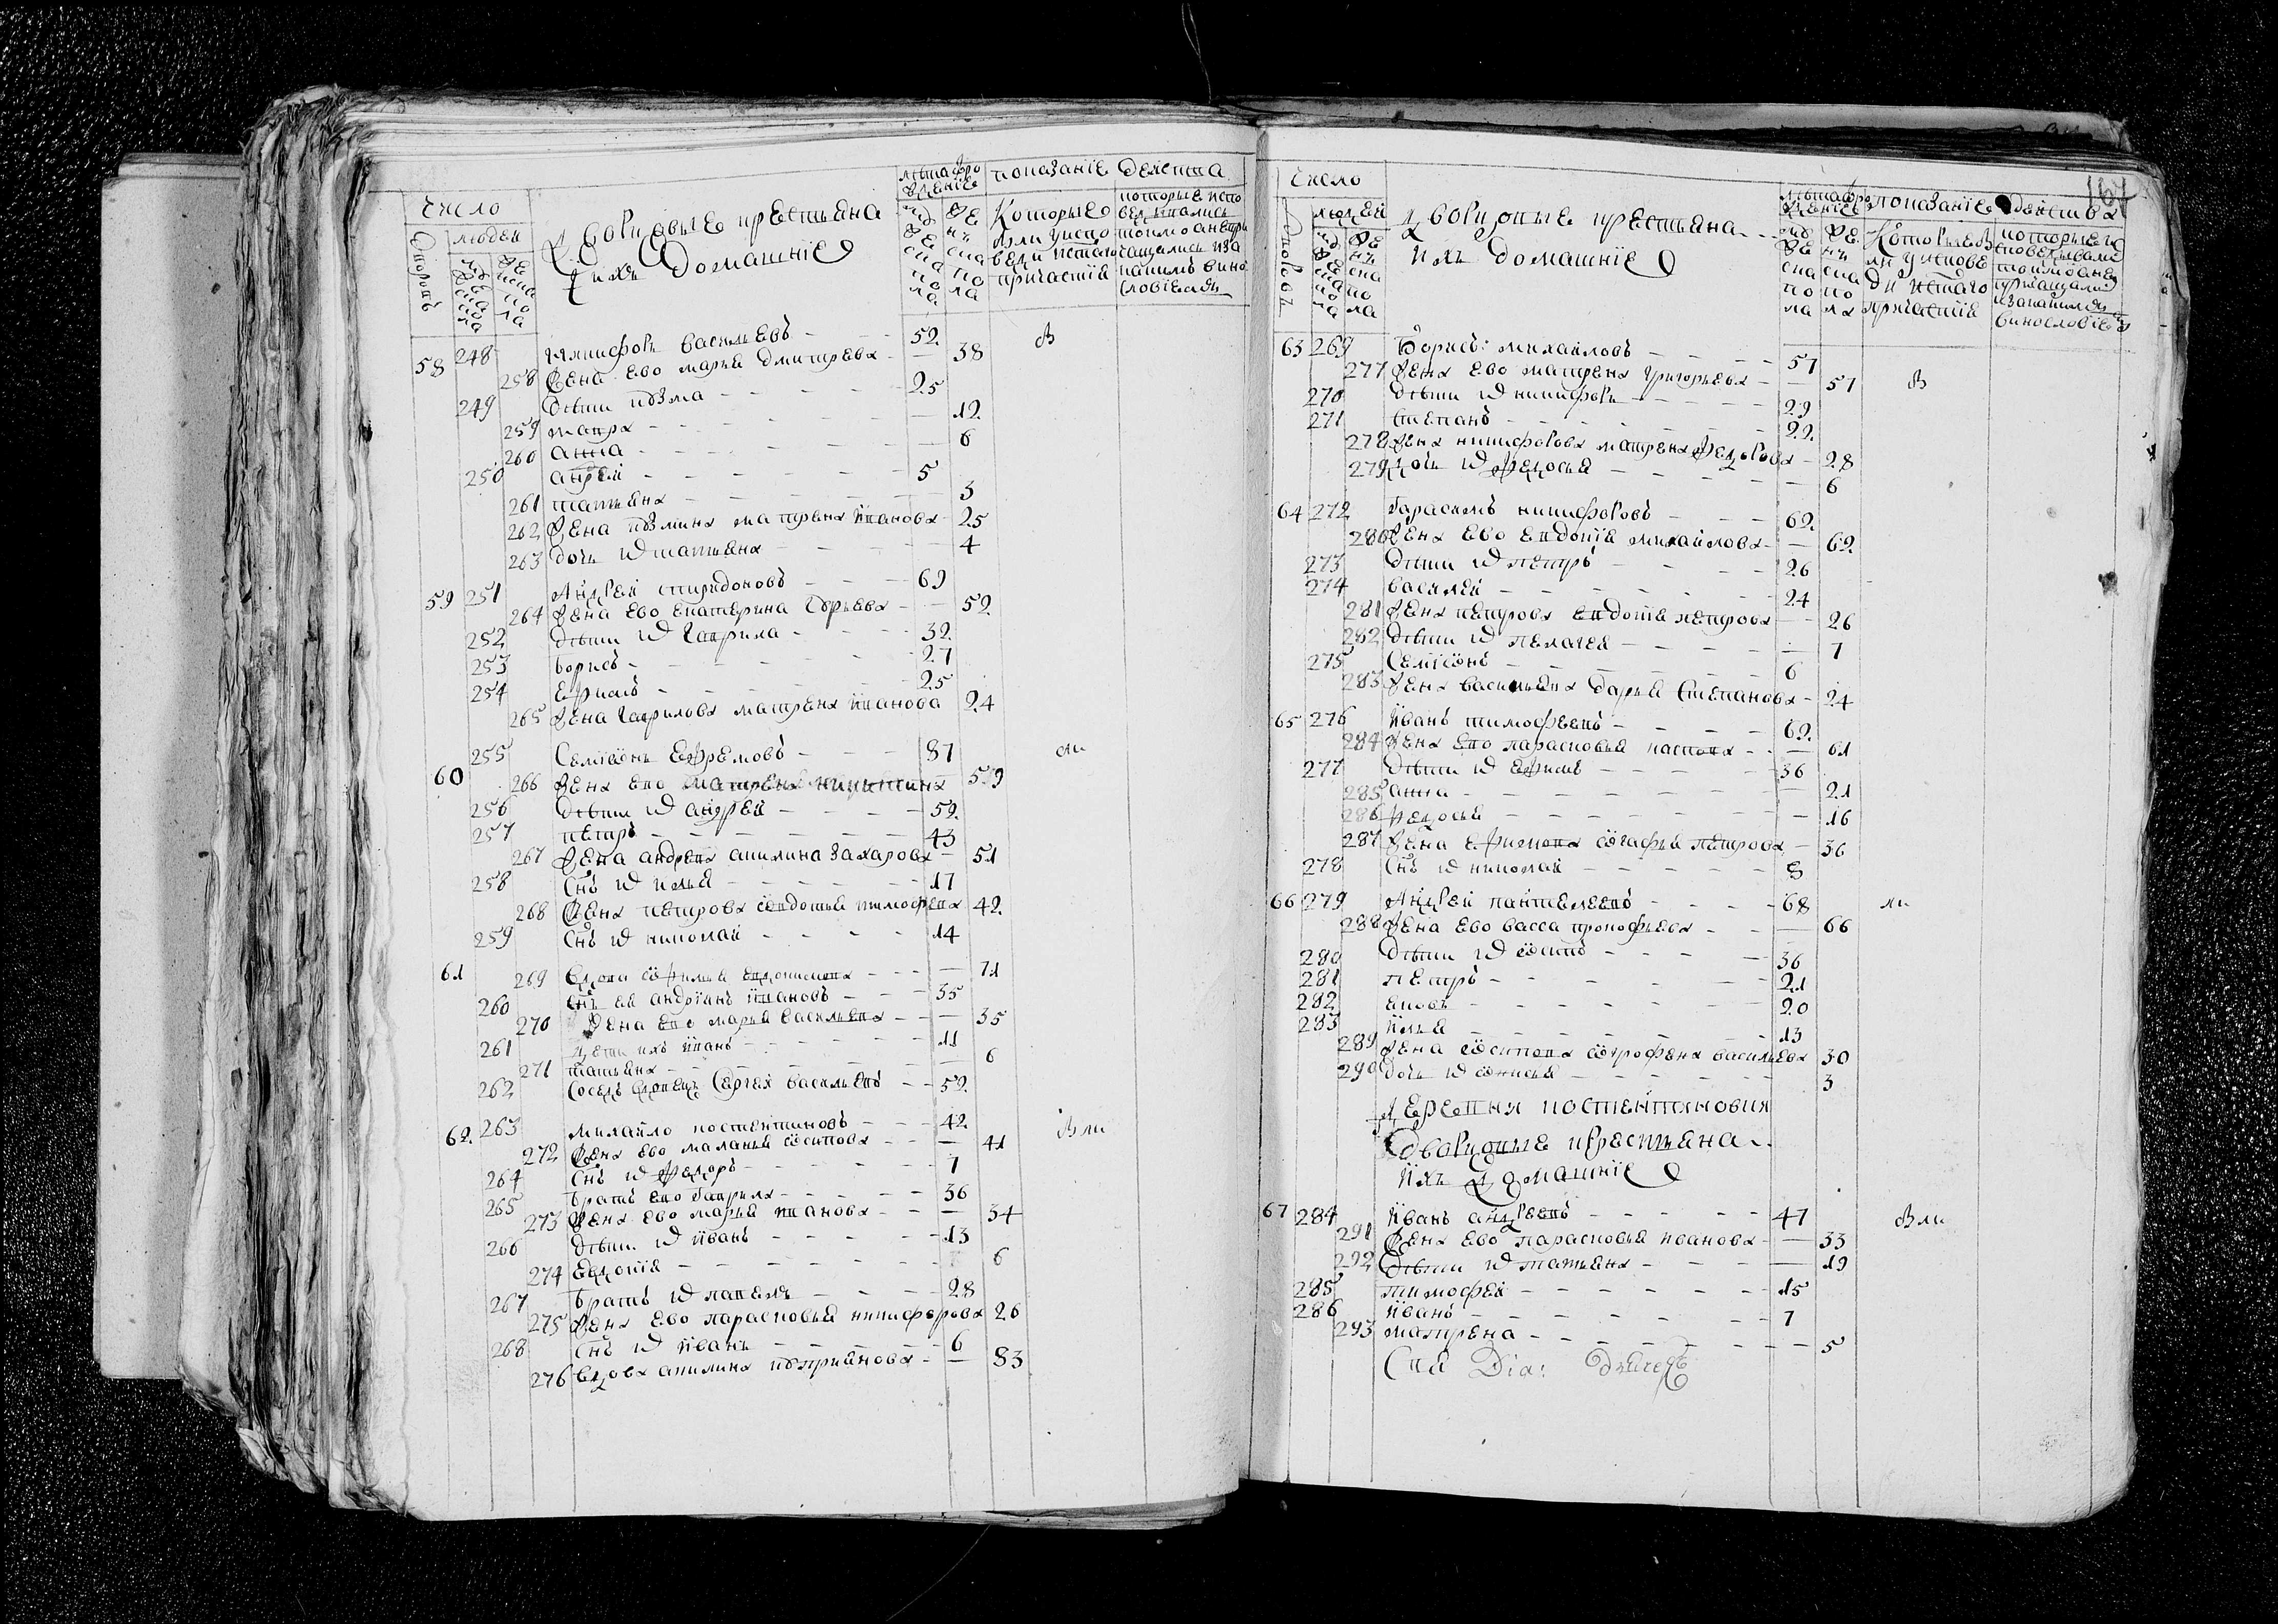 число
людей
дворовые крестьяна
и ихъ домашніе
лѣта рождения
показаніе действа
Которые были у исповеди и святаго причастія
которые исповедывались токмо а не причащались и за какимъ винословіемъ
58 248 Никифоръ васильевъ 52
258 Жена ево марья дмитрева 38
249 дѣти козма 25
259 мавра 12
260 анна 6
250 андрей 5
261 татьяна 3
262 Жена козмина матрена иванова 25
263 дочь их татьяна 4
59 251 Андрей спиридоновъ 69
264 Жена ево екатерина юрьева 52
252 дѣти их гаврила 32
253 борисъ 27
254 ефимъ 25
265 Жена гаврилова матрена иванова 24
60 255 Семіонъ Ефремовъ 87
266 Жена ево матрена никитина 59
256 дѣти их андрей 52
257 петръ 43
267 Жена андреева акилина захарова 51
258 снъ их илья 17
268 Жена петрова евдотья тимофеева 42
259 снъ их николай 14
61 269 вдова ефимья евдокимова 71
260 снъ ея андріянъ ивановъ 35
270 Жена ево марья васильева 35
261 дети ихъ иванъ 11
271 татьяна 6
262 Соседъ вдовецъ Сергей васильевъ 52
62 263 михайло костентиновъ 42
272 Жена ево маланья осипова 41
264 Снъ их федоръ 7
265 братъ ево гаврила 36
273 Жена ево марья иванова 34
266 дѣти их иванъ 13
274 евдокия 6
267 братъ их павелъ 28
275 Жена ево парасковья никифорова 26
268 снъ их иванъ 6
276 вдова акилина куприянова 83
число
людей
дворовые крестьяна
ихъ домашніе
показаніе действа
63 269 Борисъ михайловъ 57
277 Жена ево матрена григорьева 57
270 дѣти их никифоръ 29
271 степанъ 22
278 Жена никифорова матрена федорова 28
279 дочь их федосья 6
64 272 Гарасимъ никифоровъ 62
280 Жена ево евдокия михайлова 62
273 дѣти их петръ 26
274 василей 24
281 Жена петрова евдокия петрова 26
282 дѣти их пелагея 7
275 Семіонъ 6
283 Жена васильева дарья степанова 24
65 276 Иванъ тимофеевъ 62
284 Жена ево парасковья 61
277 дѣти их ефимъ 36
285 анна 21
286 федосья 16
287 Жена ефимова агафья петрова 36
278 снъ их николай 8
66 279 Андрей пантелеевъ 68
288 Жена ево васса прокофьева 66
280 дѣти их осипъ 36
281 петръ 21
282 яковъ 20
283 илья 13
289 Жена осипова афросена васильева 30
290 дочь их анисья 3
деревня костентиновка
дворовые крестьяна
ихъ домашніе
67 284 Иванъ андреевъ 47
291 Жена ево парасковья иванова 33
292 дѣти их татьяна 19
285 тимофей 15
286 иванъ 7
293 матрена 5